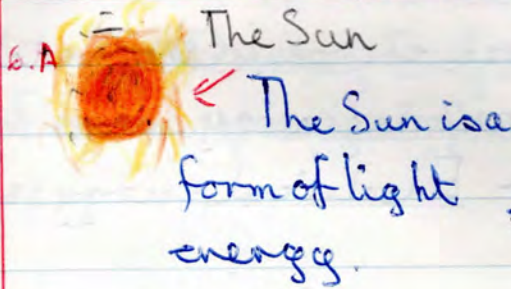 The Sun
6.A
The Sun is a
form of light
energy.